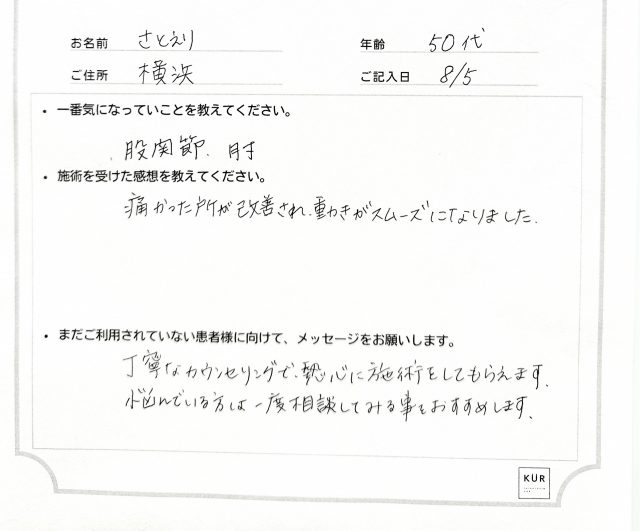 お名前 さとえり 年齢 50代
ご住所 横浜 ご記入日 8/5
・一番気になっていことを教えてください。
股関節、肘
・施術を受けた感想を教えてください。
痛かった所が改善され、動きがスムーズになりました。
・まだご利用されていない患者様に向けて、メッセージをお願いします。
丁寧なカウンセリングで、熱心に施術をしてもらえます。
悩んでいる方は一度相談してみる事をおすすめします。
KÜR